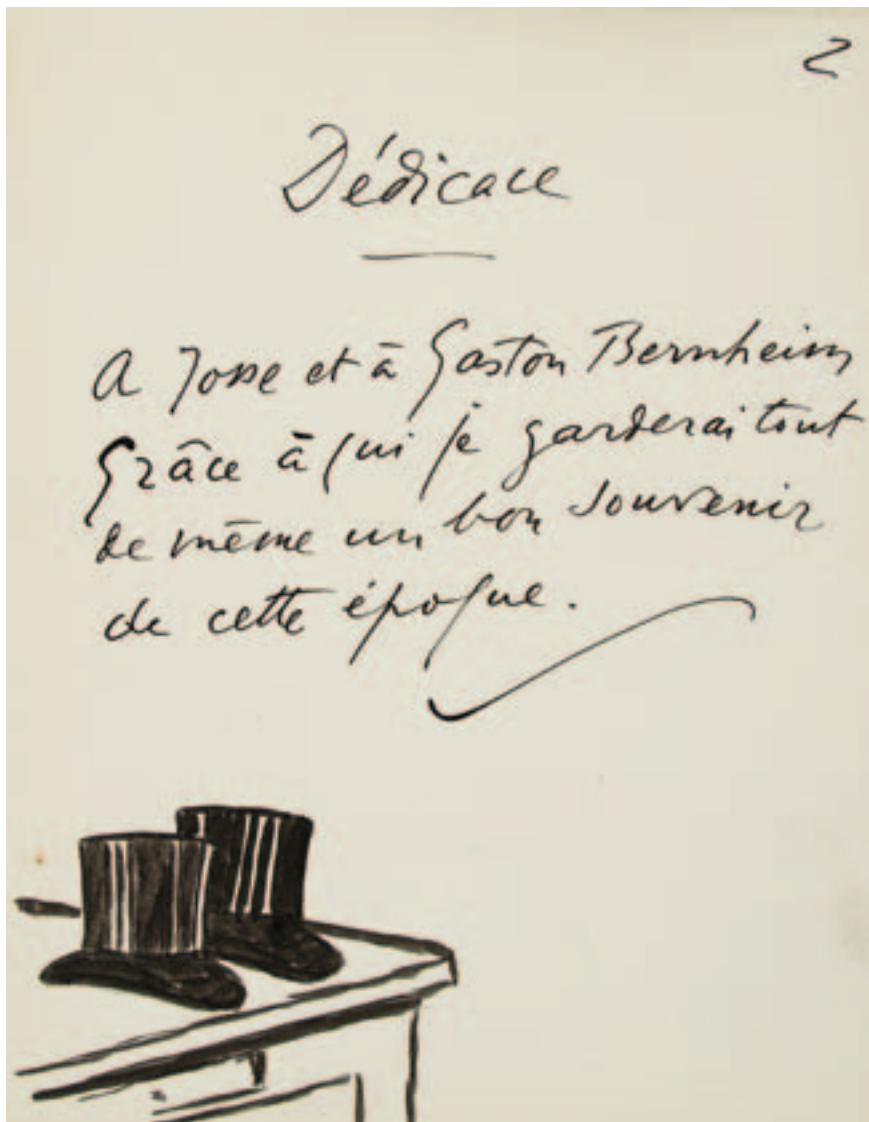 2
Dédicace
A Josse et à Gaston Bernheim
Grâce à qui je garderai tout
de même un bon souvenir
de cette époque.